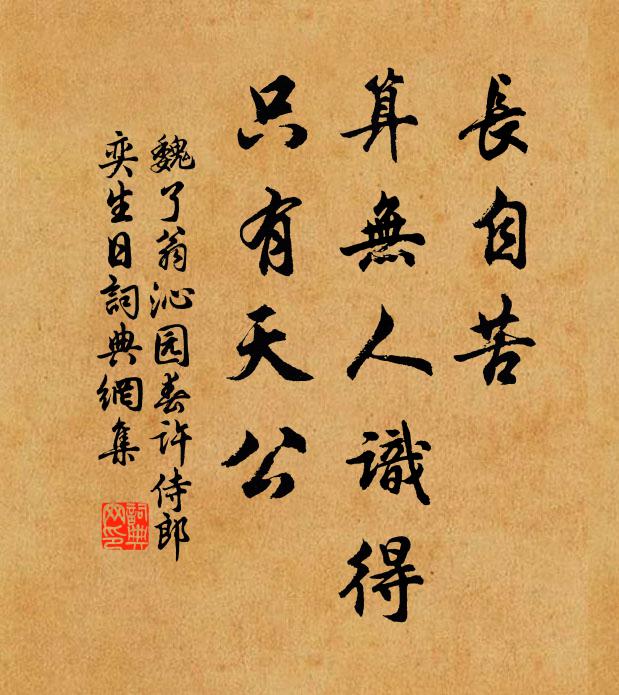 長自苦
算無人識得
只有天公
魏了翁沁园春许侍郎
奕生日詞典網集
詞典网印